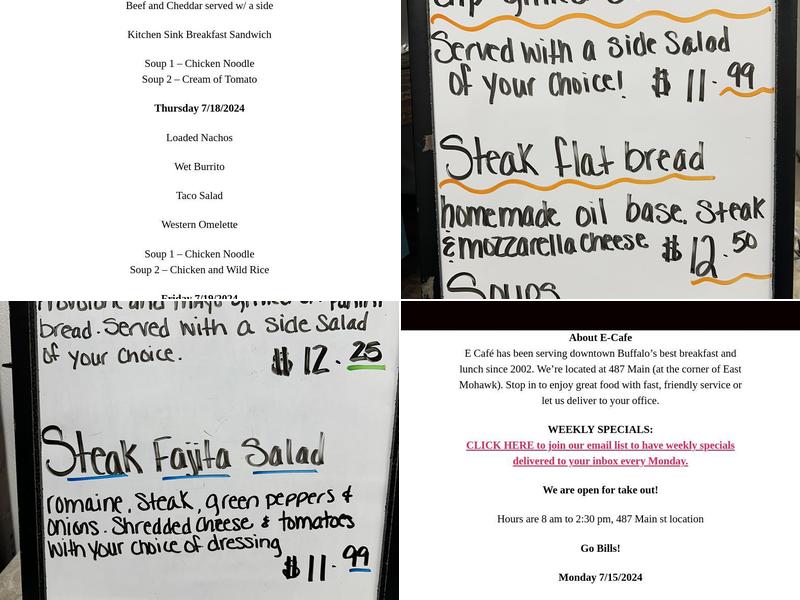 Beef and Cheddar served w/ a side
Kitchen Sink Breakfast Sandwich
Soup 1 – Chicken Noodle
Soup 2 – Cream of Tomato
Thursday 7/18/2024
Loaded Nachos
Wet Burrito
Taco Salad
Western Omelette
Soup 1 – Chicken Noodle
Soup 2 – Chicken and Wild Rice
Friday 7/19/2024
Served with a side Salad
of your choice! $ 11.99
Steak flat bread
homemade oil base. Steak
& mozzarella cheese $ 12.50
Soups
Provolone and mayo grilled on
bread. Served with a side Salad
of your choice. $ 12.25
Steak Fajita Salad
romaine, Steak, green peppers &
onions. Shredded Cheese & tomatoes
with your choice of dressing
$ 11.99
About E-Cafe
E Café has been serving downtown Buffalo's best breakfast and
lunch since 2002. We're located at 487 Main (at the corner of East
Mohawk). Stop in to enjoy great food with fast, friendly service or
let us deliver to your office.
WEEKLY SPECIALS:
CLICK HERE to join our email list to have weekly specials
delivered to your inbox every Monday.
We are open for take out!
Hours are 8 am to 2:30 pm, 487 Main st location
Go Bills!
Monday 7/15/2024